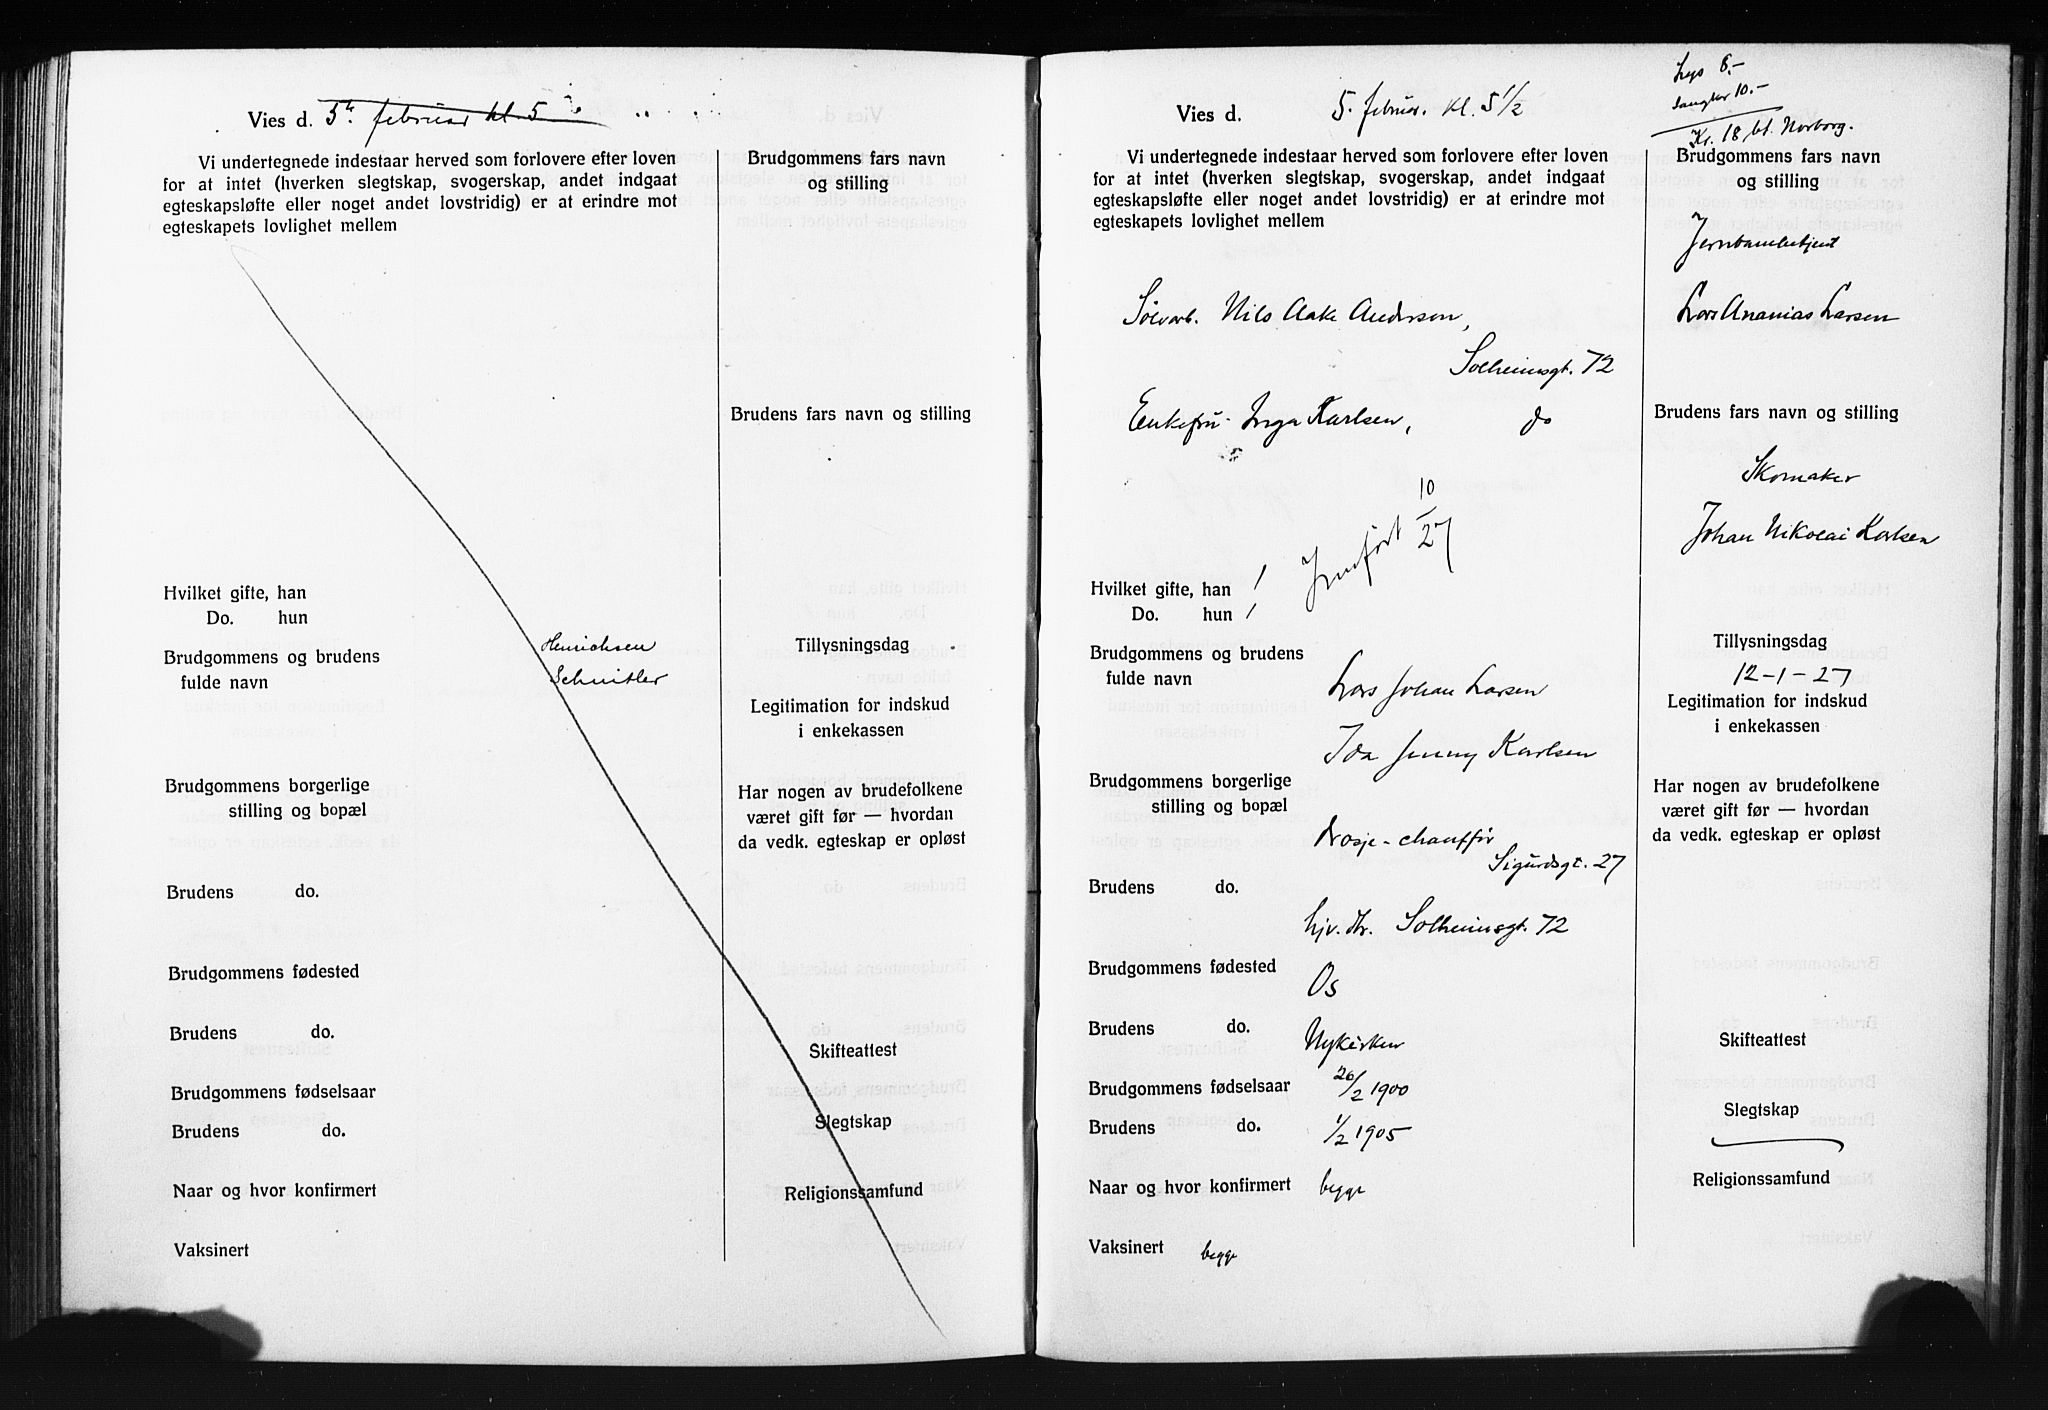 Vies d. 5te februar kl. 5
Vi undertegnede indestaar herved som forlovere efter loven
for at intet (hverken slegtskap, svogerskap, andet indgaat
egteskapsløfte eller noget andet lovstridig) er at erindre mot
egteskapets lovlighet mellem
Brudgommens fars navn
og stilling
Brudens fars navn og stilling
Hvilket gifte, han
Do. hun
Brudgommens og brudens
fulde navn
Henrichsen
Schnitler
Tillysningsdag
Legitimation for indskud
i enkekassen
Brudgommens borgerlige
stilling og bopæl
Har nogen av brudefolkene
været gift før — hvordan
da vedk. egteskap er opløst
Brudens do.
Brudgommens fødested
Brudens do.
Skifteattest
Brudgommens fødselsaar
Brudens do.
Slegtskap
Naar og hvor konfirmert
Religionssamfund
Vaksinert
Vies d. 5. februar. kl. 5 1/2
Lys 8.-
Sanglør 10.-
Kr. 18, bt. Norborg.
Vi undertegnede indestaar herved som forlovere efter loven
for at intet (hverken slegtskap, svogerskap, andet indgaat
egteskapsløfte eller noget andet lovstridig) er at erindre mot
egteskapets lovlighet mellem
Brudgommens fars navn
og stilling
Jernbanebetjent
Lars Ananias Larsen
Sølvarb. Nils Aake Anderson,
Solheimsgt. 72
Enkefru Inga Karlsen, do
Brudens fars navn og stilling
Skomaker
Johan Nikolai Karlsen
Jevnført 10/27
Hvilket gifte, han 1
Do. hun 1
Brudgommens og brudens
fulde navn
Lars Johan Larsen
Ida Jenny Karlsen
Tillysningsdag
12-1-27
Legitimation for indskud
i enkekassen
Brudgommens borgerlige
stilling og bopæl
drosje-chauffør
Sigurdsgt. 27
Har nogen av brudefolkene
været gift før — hvordan
da vedk. egteskap er opløst
Brudens do.
hjv. dtr. Solheimsgt. 72
Brudgommens fødested Os
Brudens do. Nykirken
Skifteattest
Brudgommens fødselsaar 26/2 1900
Brudens do. 1/2 1905
Slegtskap
Naar og hvor konfirmert begge
Religionssamfund
Vaksinert begge